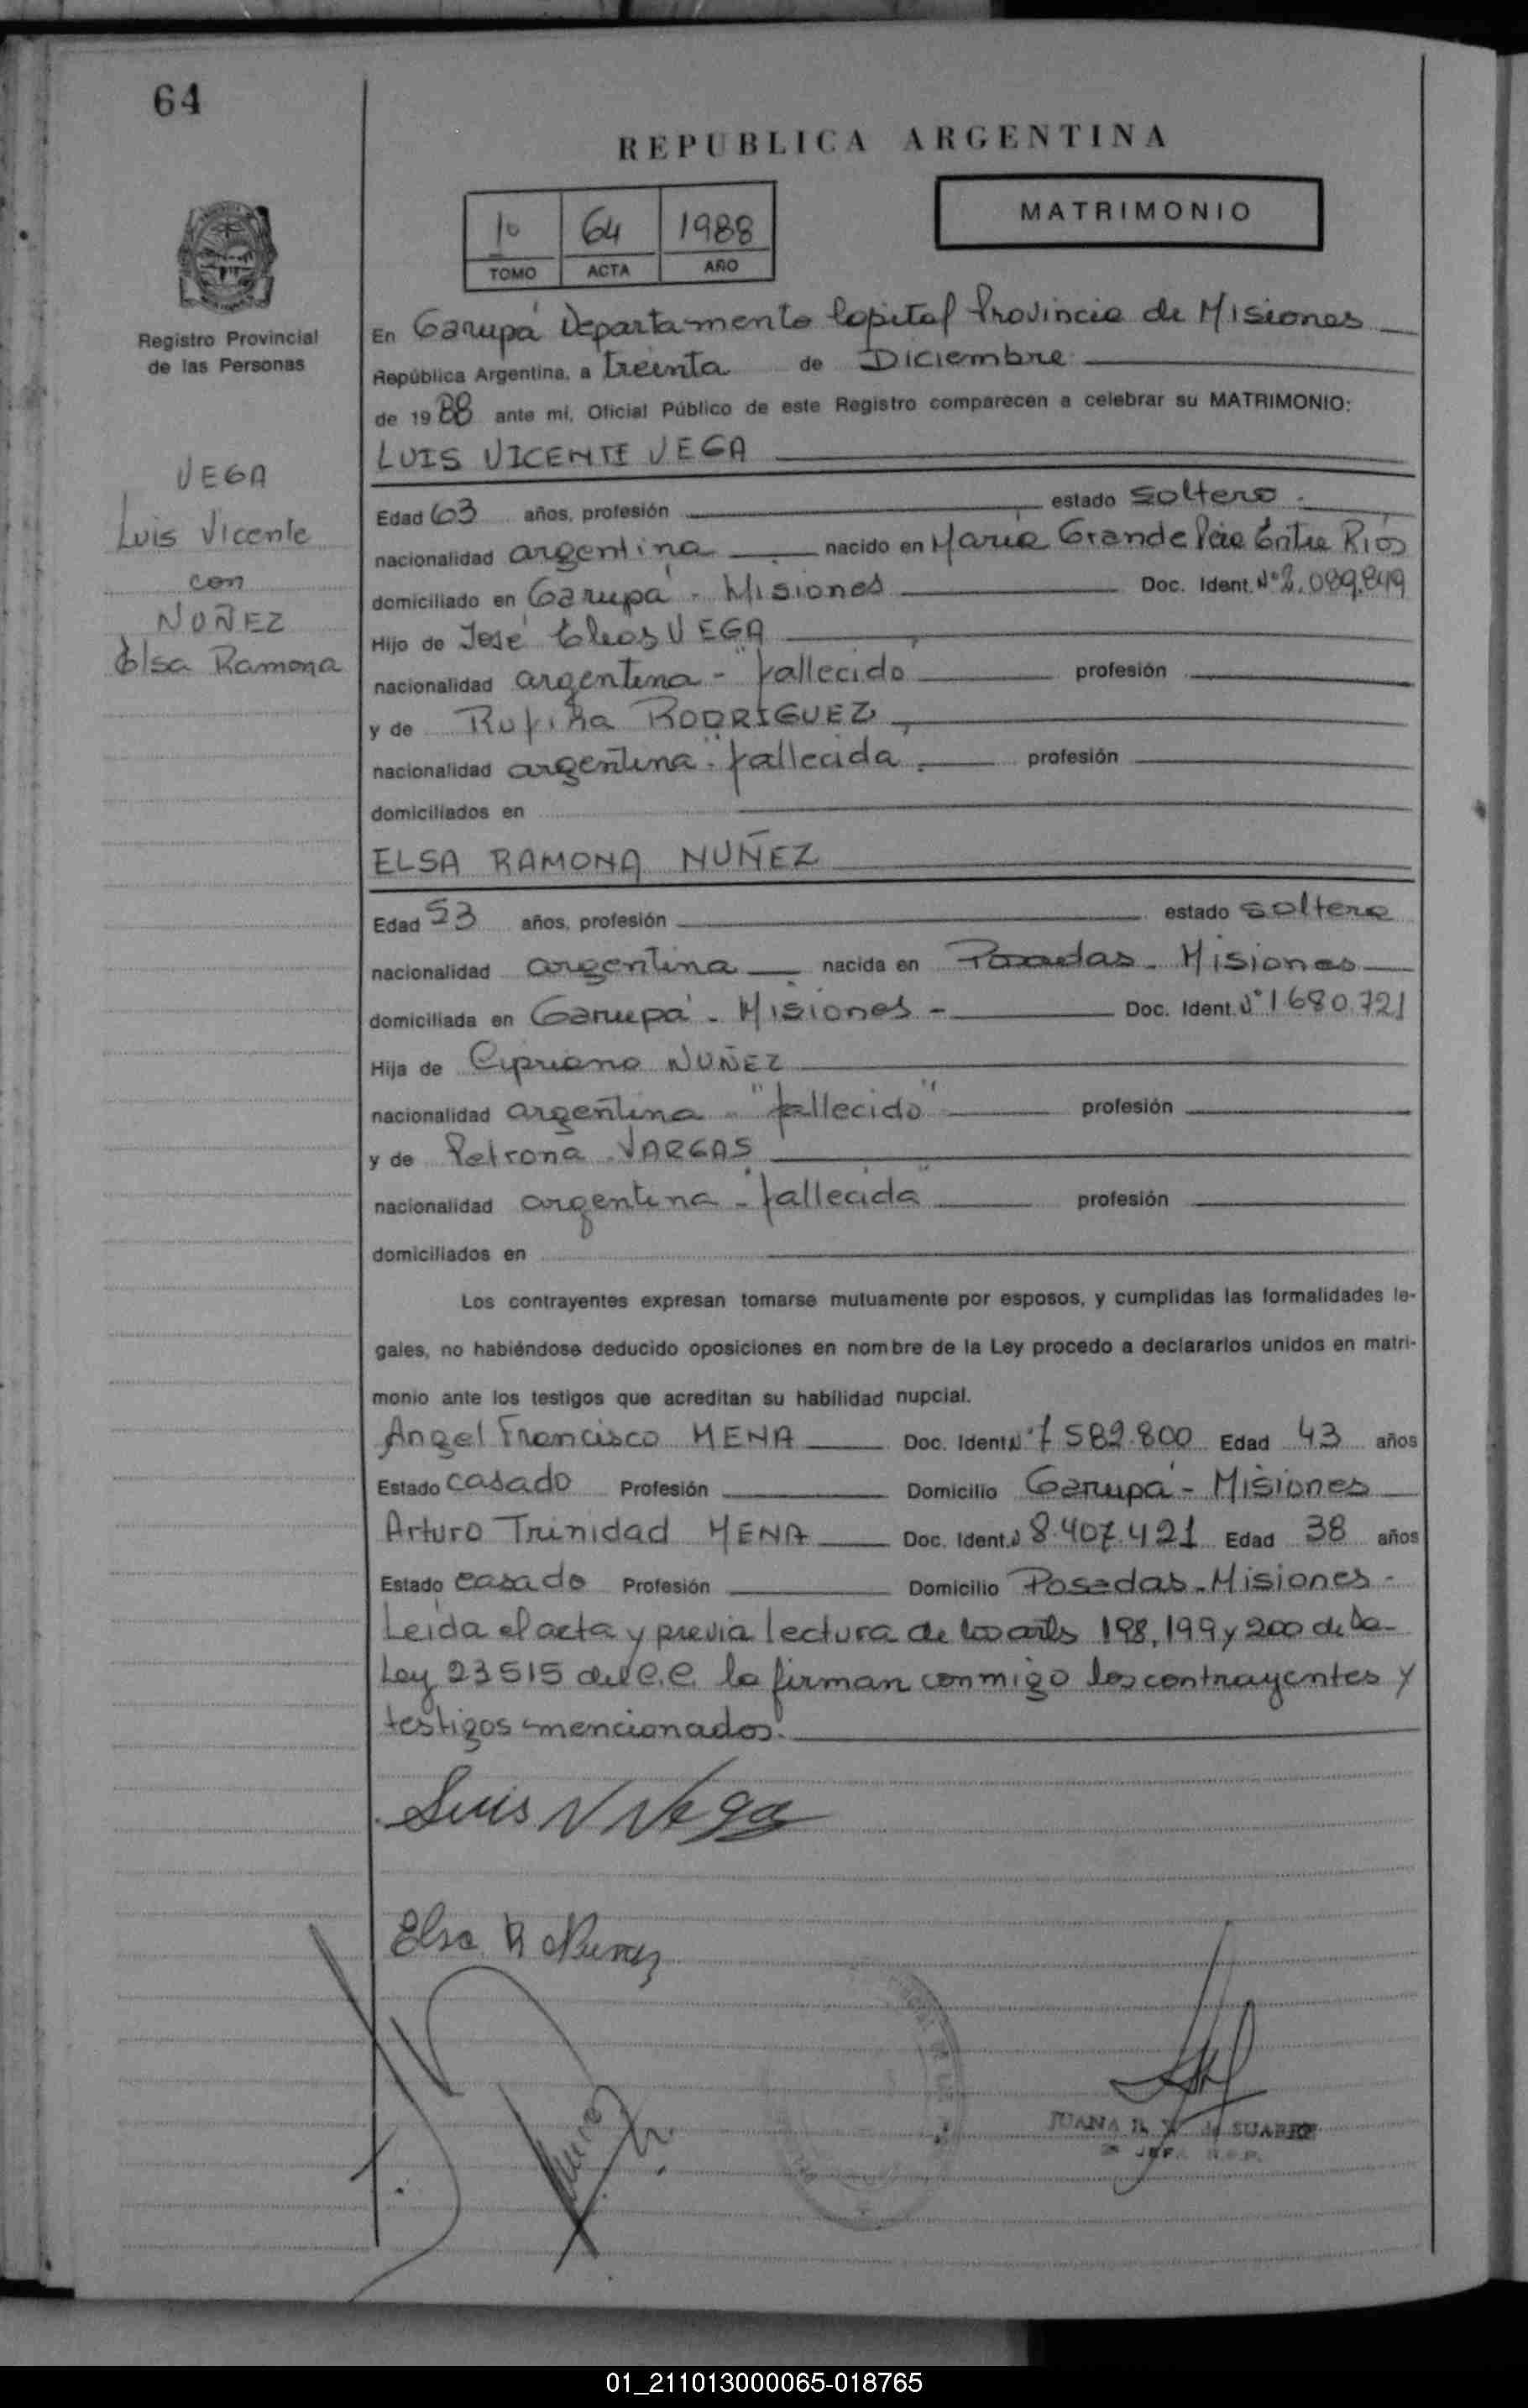 64
REPUBLICA ARGENTINA
1º 64 1988
TOMO ACTA AÑO
MATRIMONIO
Registro Provincial
de las Personas
VEGA
Luis Vicente
con
NUÑEZ
Elsa Ramona
En Garupá Departamento Capital Provincia de Misiones
República Argentina, a treinta de Diciembre
de 1988 ante mí, Oficial Público de este Registro comparecen a celebrar su MATRIMONIO:
LUIS VICENTE VEGA
Edad 63 años, profesión estado soltero.
nacionalidad argentina nacido en María Grande Pcia Entre Ríos
domiciliado en Garupá - Misiones Doc. Ident. Nº 2.089.849
Hijo de José VEGA
nacionalidad argentina - "fallecido profesión
y de Rufina RODRIGUEZ,
nacionalidad argentina "fallecida" profesión
domiciliados en
ELSA RAMONA NUÑEZ
Edad 53 años, profesión estado soltera
nacionalidad argentina nacida en Posadas - Misiones
domiciliada en Garupá - Misiones - Doc. Ident. Nº 1680.721
Hija de Cipriano NUÑEZ
nacionalidad argentina - "fallecido" profesión
y de Petrona VARGAS
nacionalidad argentina - "fallecida" profesión
domiciliados en
Los contrayentes expresan tomarse mutuamente por esposos, y cumplidas las formalidades le-
gales, no habiéndose deducido oposiciones en nombre de la Ley procedo a declararlos unidos en matri-
monio ante los testigos que acreditan su habilidad nupcial.
Angel Francisco MENA Doc. Ident. Nº 7.589.800 Edad 43 años
Estado casado Profesión Domicilio Garupá - Misiones
Arturo Trinidad MENA Doc. Ident. Nº 8.407.421 Edad 38 años
Estado casado Profesión Domicilio Posadas - Misiones -
Leída el acta y previa lectura de los arts 198, 199 y 200 de la
Ley 23515 del C.C. la firman conmigo los contrayentes y
testigos mencionados.
Luis V Vega
Elsa R Nuñez
JUANA de SUAREZ
JEFA R.P.P.
01_211013000065-018765